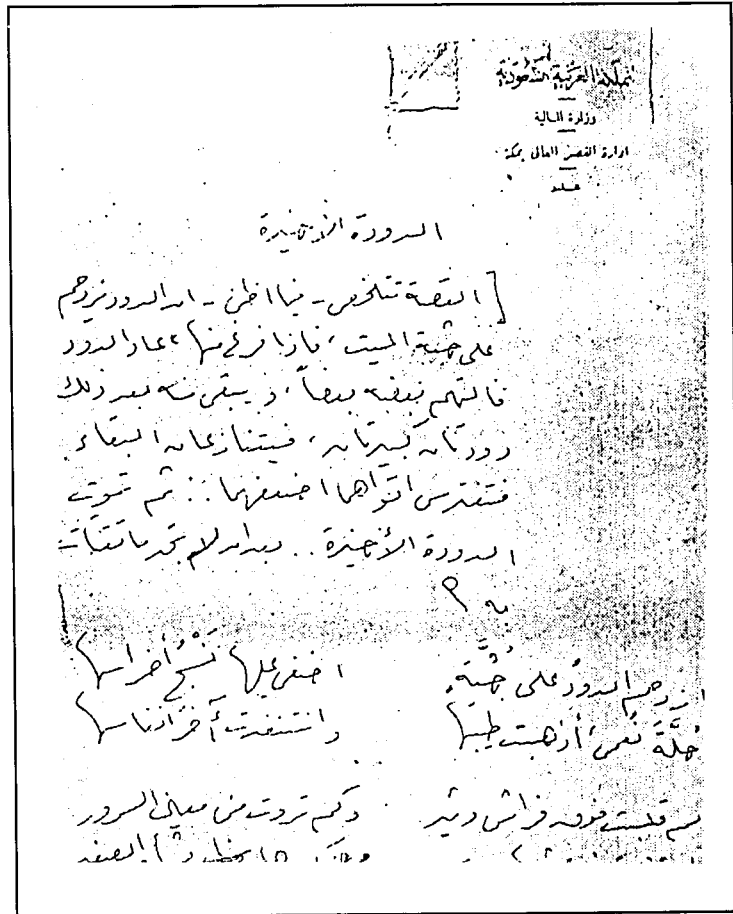 المملكة العربية السعودية
وزارة المالية
ادارة القصر العالى بمكة
عدد
الدودة الأخيرة
[ القصة تتلخص - فيما اظن - ان الدود يزدحم
على جثة الميت، فاذا فرغ منها، عاد الدود
فالتهم بعضه بعضاً، ويبقى منه بعد ذلك
دودتان كبيرتان، فيتنازعان البقاء
فتفترس اقواهما اضعفهما .. ثم تموت
الدودة الأخيرة .. بعد ان لم تجد ما تقتات
به ؟
ازدحم الدود على جُثَّةٍ اضفى عليها نَسْجُ أضراسها
حُلَّةَ نُعمى أذهبت طيبها واستنفدت أخر أنفاسها
كم قلبت فوق فراش وثير وكم تروت من معاني السرور